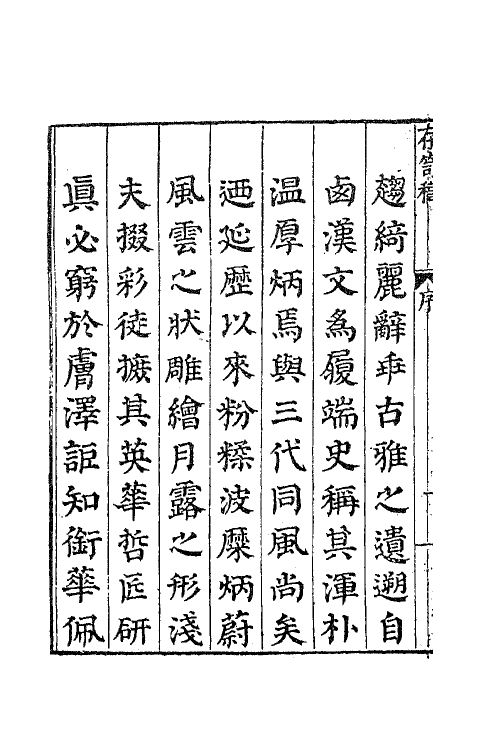 存笥稿
序
趨綺麗辭乖古雅之遺遡自
西漢文為履端史稱其渾朴
温厚炳焉與三代同風尚矣
迺延歴以來粉糅波糜炳蔚
風雲之狀雕繪月露之形淺
夫掇彩徒摭其英華哲匠研
眞必窮於膚澤詎知銜華佩